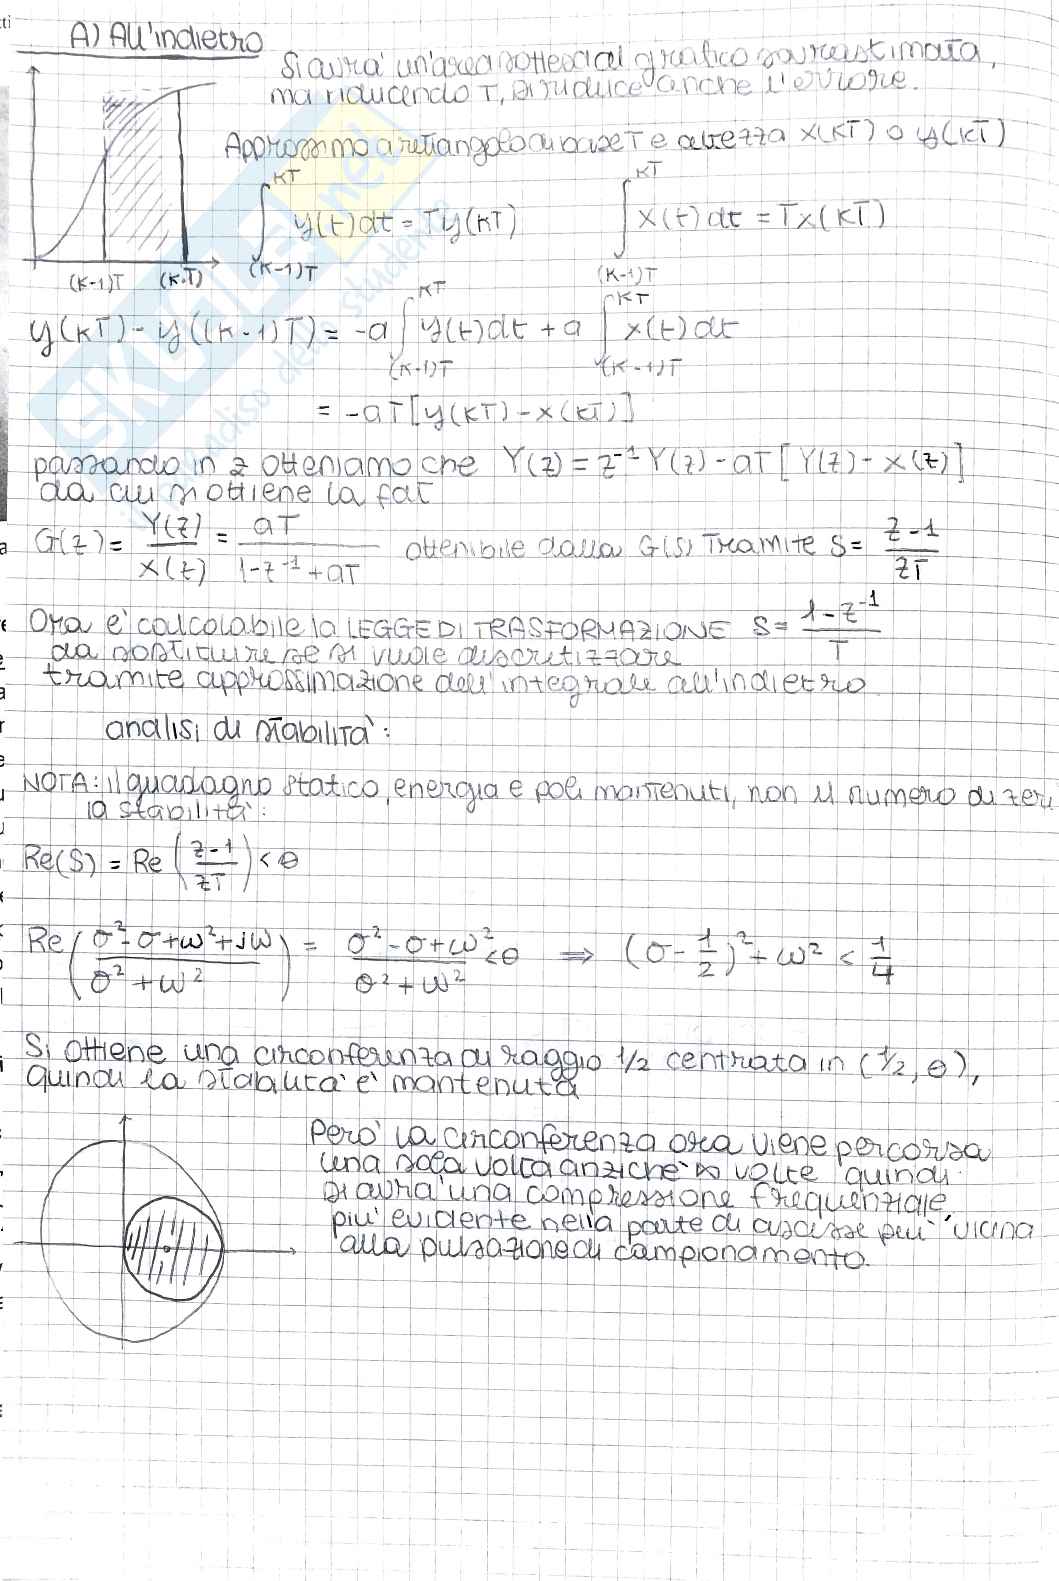 A) All'indietro
Si avrà un'area sottesa al grafico sovrastimata,
ma riducendo T, si riduce anche l'errore.
Approssimo a rettangolo di base T e altezza x(KT) o y(KT)
∫_{(K-1)T}^{KT} y(t)dt = Ty(KT)    ∫_{(K-1)T}^{KT} x(t)dt = Tx(KT)
(K-1)T (K·T)
y(KT) - y((K-1)T) = -a ∫_{(K-1)T}^{KT} y(t)dt + a ∫_{(K-1)T}^{KT} x(t)dt
= -aT[y(KT) - x(KT)]
passando in z otteniamo che Y(z) = z⁻¹Y(z) - aT[Y(z) - X(z)]
da cui si ottiene la fdt
G(z) = Y(z)/X(z) = aT/(1-z⁻¹+aT) ottenibile dalla G(s) tramite S = (z-1)/(zT)
Ora è calcolabile la LEGGE DI TRASFORMAZIONE S = (1-z⁻¹)/T
da sostituire se si vuole discretizzare
tramite approssimazione dell'integrale all'indietro
analisi di stabilità:
NOTA: il guadagno statico, energia e poli mantenuti, non il numero di zeri
la stabilità:
Re(S) = Re((z-1)/(zT)) < 0
Re((σ²-σ+ω²+jω)/(σ²+ω²)) = (σ²-σ+ω²)/(σ²+ω²) < 0 ⇒ (σ-1/2)² + ω² < 1/4
Si ottiene una circonferenza di raggio 1/2 centrata in (1/2, 0),
quindi la stabilità è mantenuta
Però la circonferenza ora viene percorsa
una sola volta anziché ∞ volte quindi
si avrà una compressione frequenziale,
più evidente nella parte di ascisse più vicina
alla pulsazione di campionamento.